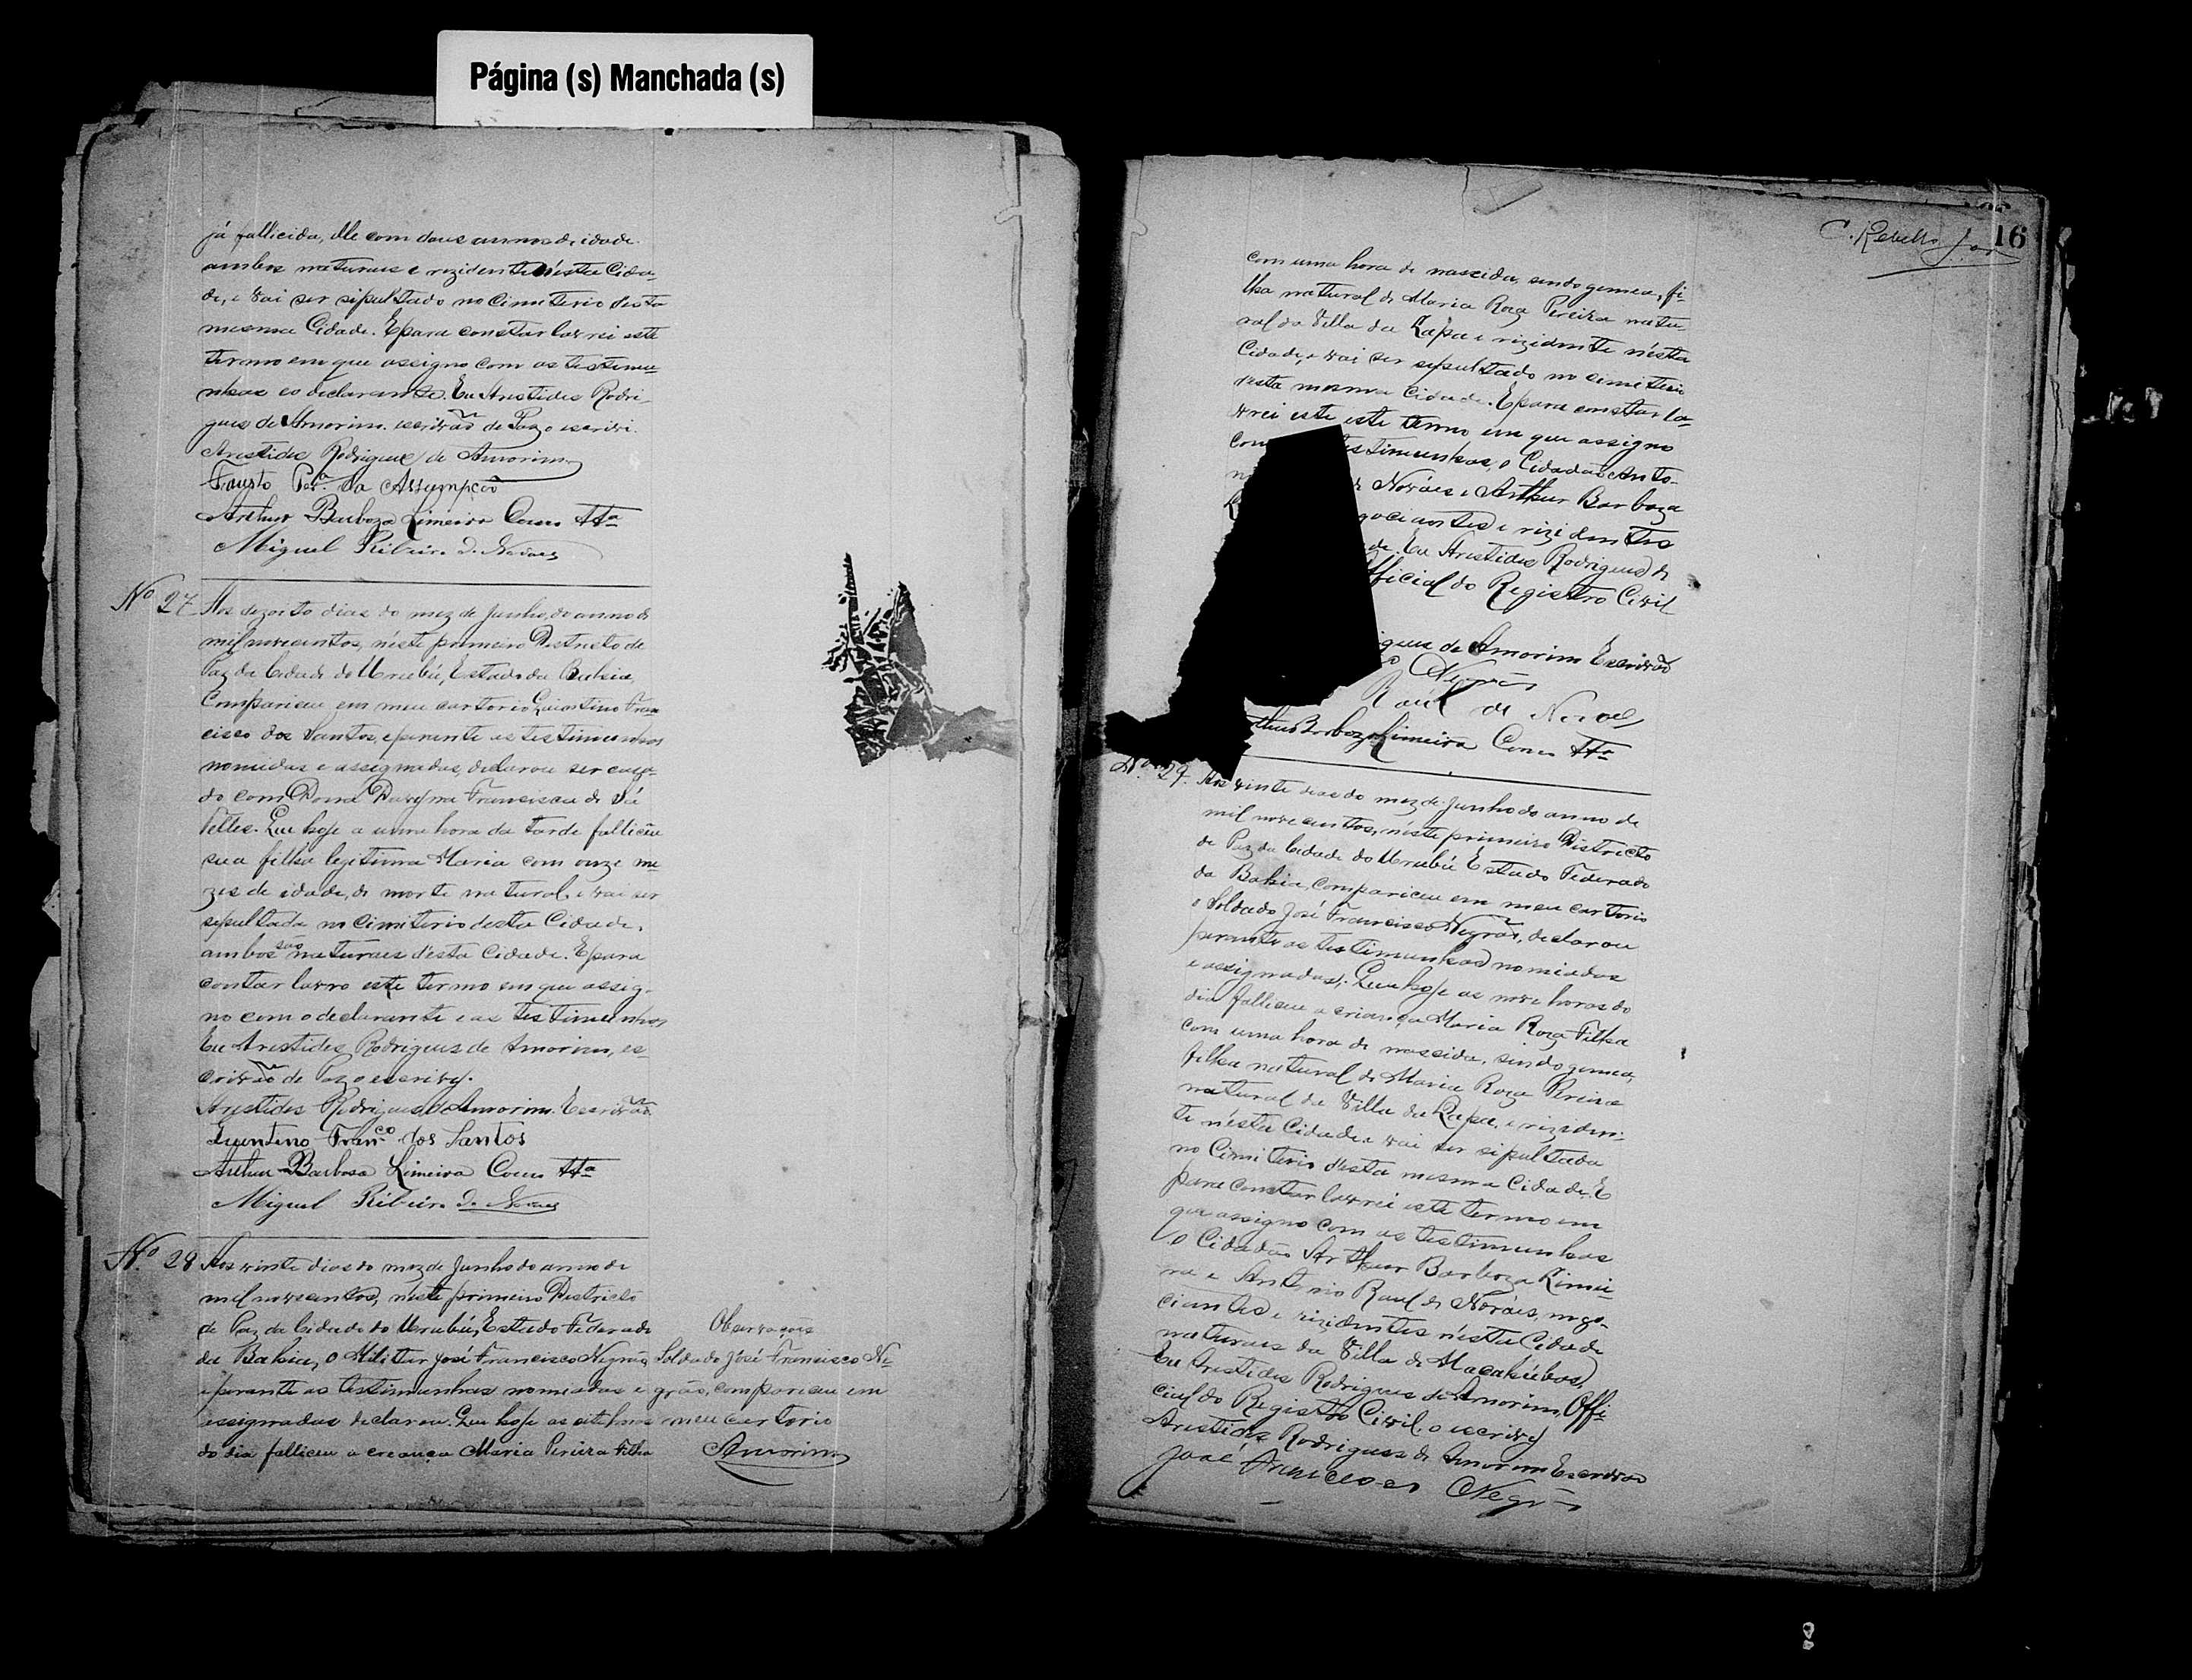 Página (s) Manchada (s)
já fallicida, elle com dous annos de idade
ambos naturaes e rezidente nésta Cida-
de, e vai ser sipultado no Cimiterio desta
mesma Cidade. E para constar lavrei este
termo em que assigno com as testimu-
nhas e o declarante. Eu Aristides Rodri-
gues de Amorim escrivão de Paz o escrivi.
Aristides Rodrigues de Amorim
Fausto Per.ª da Assumpção
Arthur Barboza Limeira Como Tta
Miguel Ribeiro de Novaes
Nº 27 Aos dezoito dias do mez de Junho, do anno de
mil novecentos, néste primeiro Destricto de
Paz da Cidade do Urubú, Estado da Bahia,
Compariceu em meu cartorio Quintino Fran
cisco dos Santos, e parante as testimunhas
nomiadas e assignadas, declarou ser casa-
do com Dona Francisca de Sá
Telles. Que hoje a uma hora da tarde falliceu
sua filha legitima Maria com onze me
zes de idade, de morte natural e vai ser
sepultada no Cimiterio desta Cidade,
ambos são naturaes désta Cidade. E para
contar lavro este termo em que assig-
no com o declarante e as testimunhas
Eu Aristides Rodrigues de Amorim, es-
crivão de Paz o escrivy.
Aristides Rodrigues de Amorim. Escrivão
Quintino Franco dos Santos
Arthur Barbosa Limeira Como Tta
Miguel Ribeiro de Novaes
Nº 28 Aos vinte dias do mez de Junho do anno de
mil novecentos, neste primeiro Destricto
de Paz da Cidade do Urubú, Estado Federado
da Bahia, o Militar José Francisco Negrão,
e perante as testimunhas nomiadas e
assignadas declarou. Que hoje as oito horas
do dia falliceu a creança Maria Pereira Filha
Observações
Soldado José Francisco Ne-
grão, compariceu em
meu cartorio
Amorim
16
C. Rebello
com uma hora de nascida, sendo gemea, fi-
lha natural de Maria Roza Pereira natu-
ral da Villa da Lapa e rizidente nésta
Cidade, e vai ser sepultado no cimiterio
desta mesma Cidade. E para constar la-
vrei este este termo em que assigno
com testimunhas, o Cidadão Anto-
de Nováes e Arthur Barboza
gociantes e rizidentes
de. Eu Aristides Rodrigues de
Official do Registro Civil
igues de Amorim Escrivão
Negrão
Raúl de Novaes
thur Barboza Limeira Como Tta
Nº 29. Aos vinte dias do mez de Junho do anno de
mil novecentos, néste primeiro Districto
de Paz da Cidade do Urubú Estado Federado
da Bahia, compariceu em meu cartorio
o Soldado José Francisco Negrão, declarou
perante as testimunhas nomiadas
e assignadas. Que hoje as nove horas do
dia falliceu a criança Maria Roza Filha
com uma hora de nascida, sendo gemea,
filha natural de Maria Roza Pereira
natural da Villa da Lapa, e rezeden-
te nésta Cidade, e vai ser sipultada
no Cimiterio désta mesma Cidade. E
para constar lavrei este termo em
que assigno com as testimunhas
o Cidadão Arthur Barboza Limei-
ra e Antonio Raul de Nováes, nego-
ciantes e rizidentes nésta Cidade
naturaes da Villa de Macahúbas,
Eu Aristides Rodrigues de Amorim, Offi-
cial do Registro Civil, o escrivy
Aristides Rodrigues de Amorim Escrivão
José Francisco Negrão